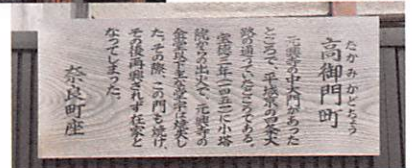 たかみかどちょう
高御門町
元興寺の中大門があった
ところで、平城京の四条大
路の通っていたところである。
宝徳三年(一四五一)に小塔
院からの出火で、元興寺の
金堂以下主な堂宇は焼失し
た。その際、この門も焼け、
その後再興されず在家と
なってしまった。
奈良町座